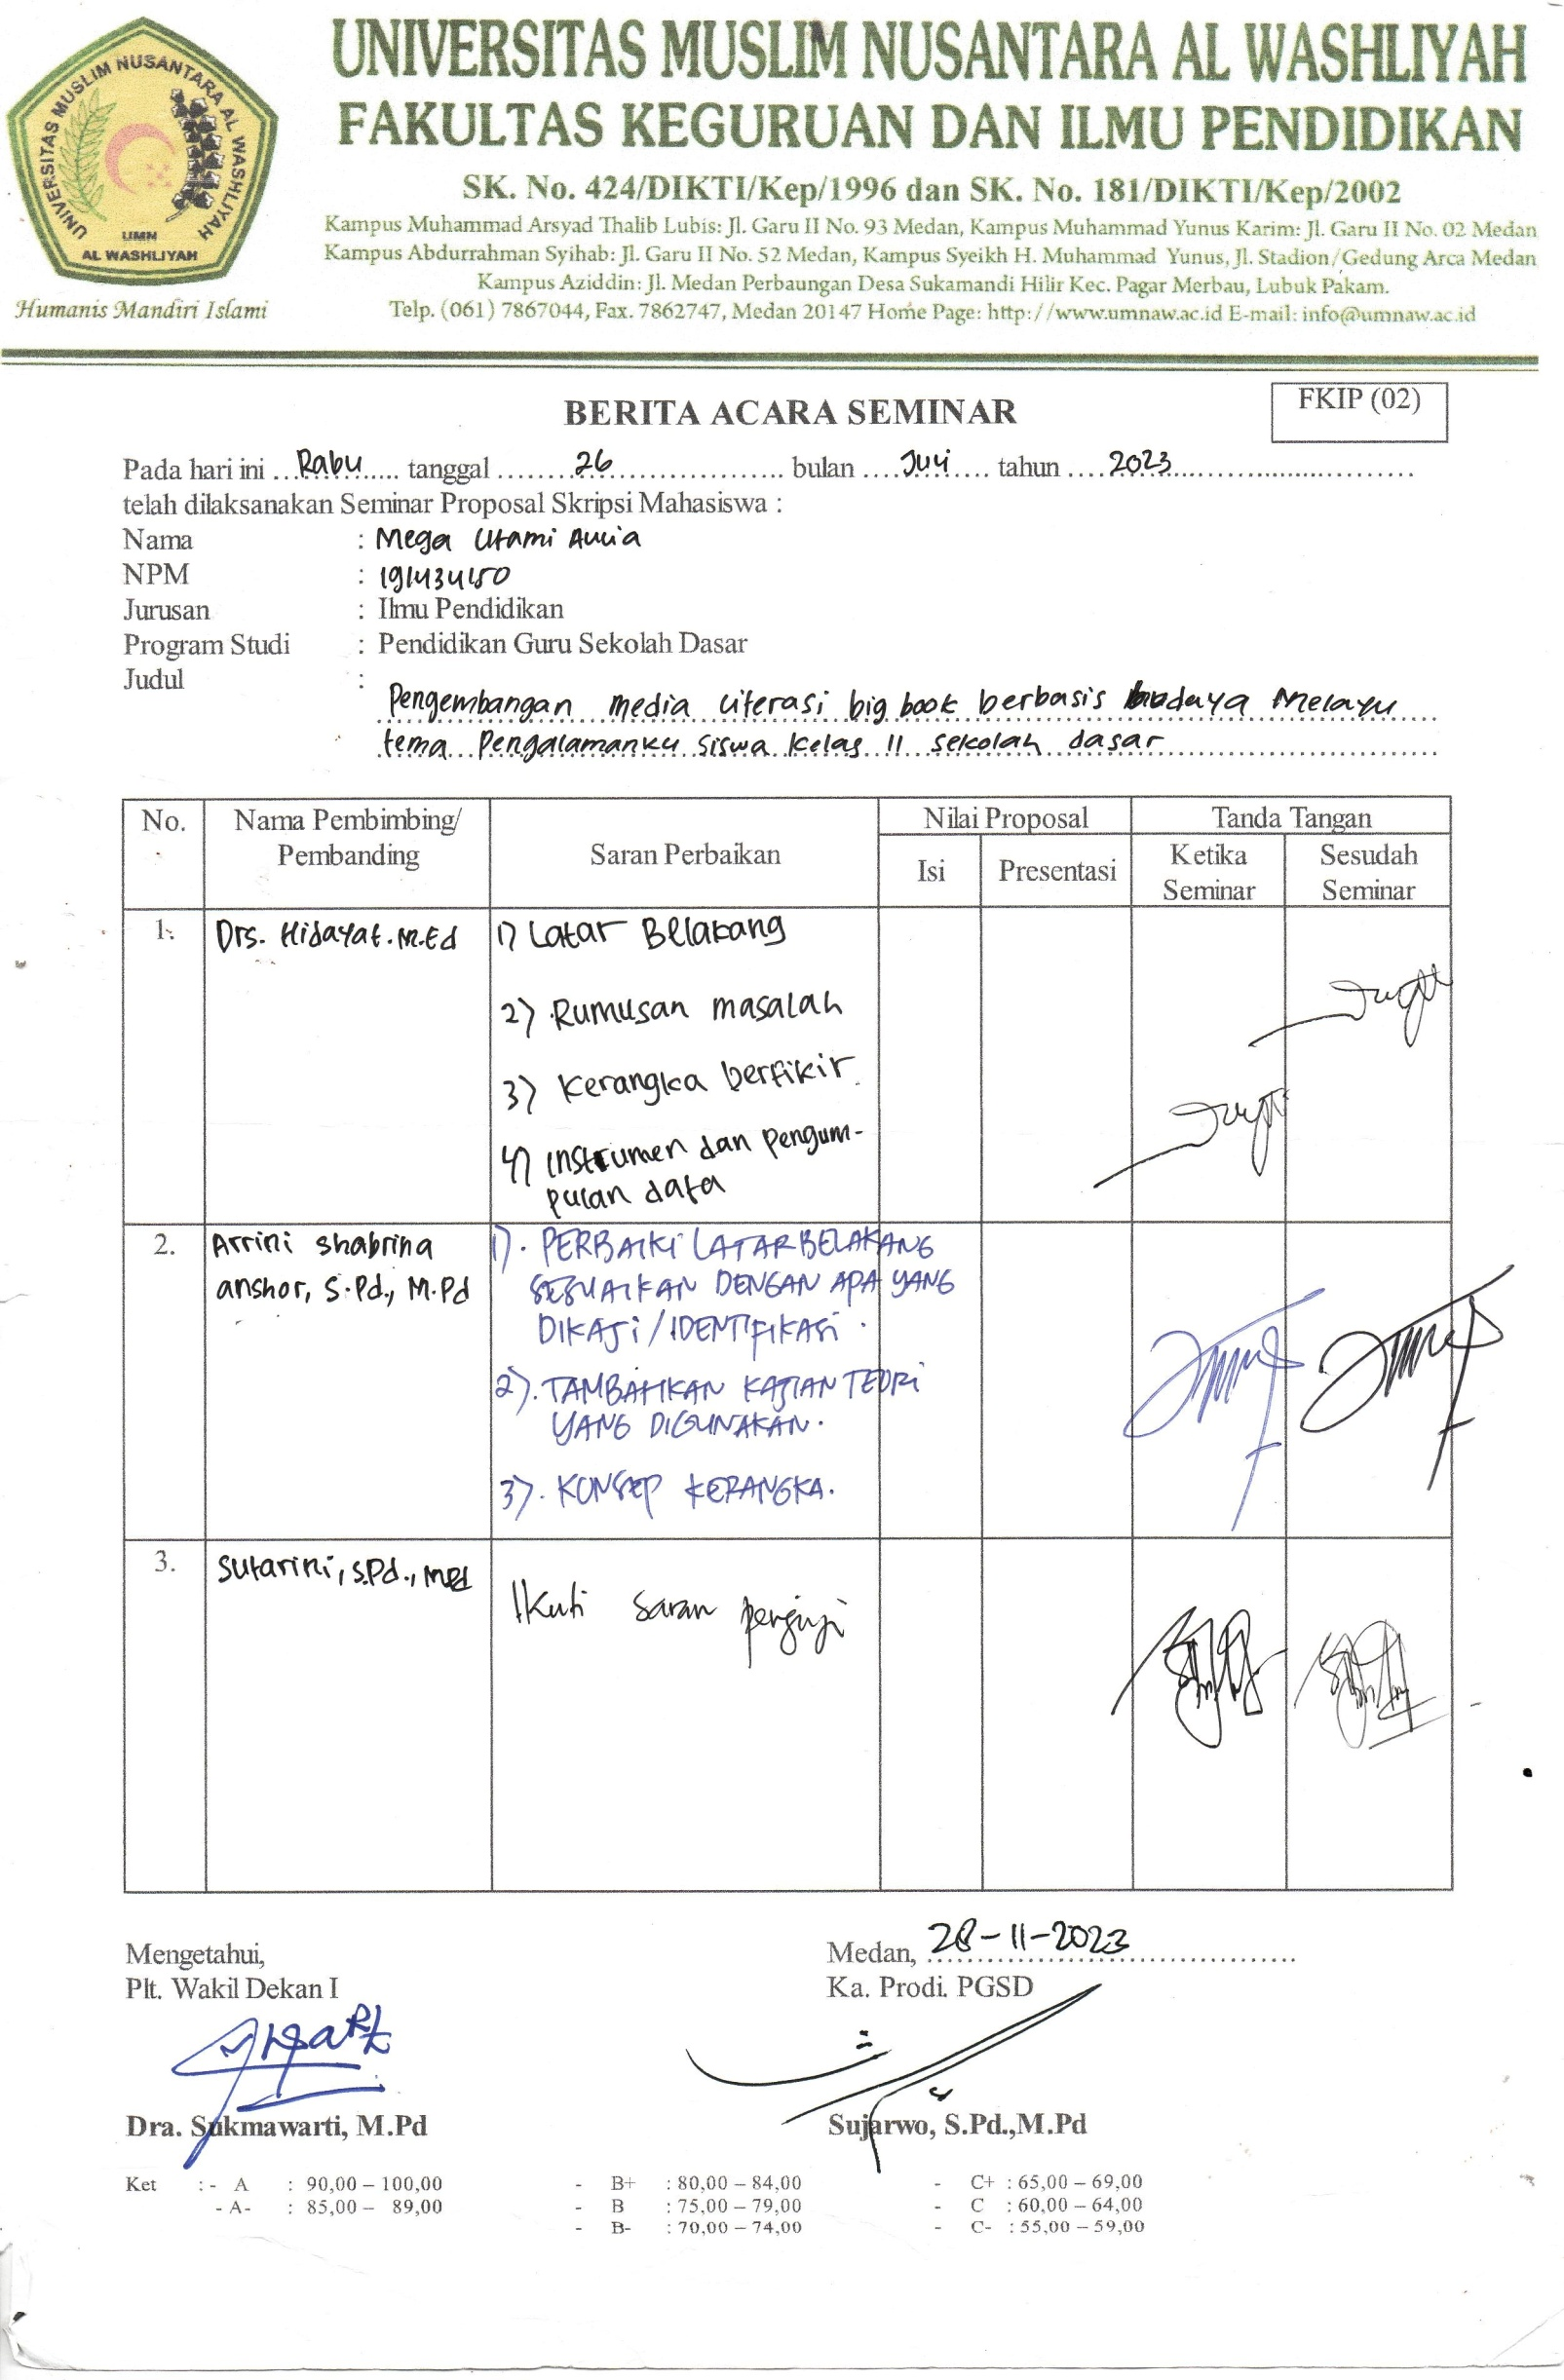 UNIVERSITAS MUSLIM NUSANTARA AL WASHLIYAH
UMN
AL WASHLIYAH
Humanis Mandiri Islami
UNIVERSITAS MUSLIM NUSANTARA AL WASHLIYAH
FAKULTAS KEGURUAN DAN ILMU PENDIDIKAN
SK. No. 424/DIKTI/Kep/1996 dan SK. No. 181/DIKTI/Kep/2002
Kampus Muhammad Arsyad Thalib Lubis: Jl. Garu II No. 93 Medan, Kampus Muhammad Yunus Karim: Jl. Garu II No. 02 Medan
Kampus Abdurrahman Syihab: Jl. Garu II No. 52 Medan, Kampus Syeikh H. Muhammad Yunus, Jl. Stadion/Gedung Arca Medan
Kampus Aziddin: Jl. Medan Perbaungan Desa Sukamandi Hilir Kec. Pagar Merbau, Lubuk Pakam.
Telp. (061) 7867044, Fax. 7862747, Medan 20147 Home Page: http://www.umnaw.ac.id E-mail: info@umnaw.ac.id
FKIP (02)
BERITA ACARA SEMINAR
Pada hari ini Rabu tanggal 26 bulan Juli tahun 2023
telah dilaksanakan Seminar Proposal Skripsi Mahasiswa :
Nama : Mega Utami Aulia
NPM : 191434150
Jurusan : Ilmu Pendidikan
Program Studi : Pendidikan Guru Sekolah Dasar
Judul :
Pengembangan media literasi big book berbasis budaya Melayu
tema Pengalamanku siswa kelas II sekolah dasar
No. Nama Pembimbing/ Pembanding Saran Perbaikan Nilai Proposal Tanda Tangan
Isi Presentasi Ketika Seminar Sesudah Seminar
1. Drs. Hidayat. M.Ed 1) Latar Belakang
2) Rumusan masalah
3) Kerangka berfikir
4) instrumen dan pengum-
pulan data
2. Arrini shabrina 1). PERBAIKI LATAR BELAKANG
anshor, S.Pd., M.Pd SESUAIKAN DENGAN APA YANG
DIKAJI/IDENTIFIKASI.
2). TAMBAHKAN KAJIAN TEORI
YANG DIGUNAKAN.
3). KONSEP KERANGKA.
3. Sutarini, S.Pd., M.Pd
Ikuti saran penguji
Mengetahui,
Plt. Wakil Dekan I
Medan, 28-11-2023
Ka. Prodi. PGSD
Dra. Sukmawarti, M.Pd
Sujarwo, S.Pd.,M.Pd
Ket :- A : 90,00 – 100,00 - B+ : 80,00 – 84,00 - C+ : 65,00 – 69,00
- A- : 85,00 – 89,00 - B : 75,00 – 79,00 - C : 60,00 – 64,00
- B- : 70,00 – 74,00 - C- : 55,00 – 59,00